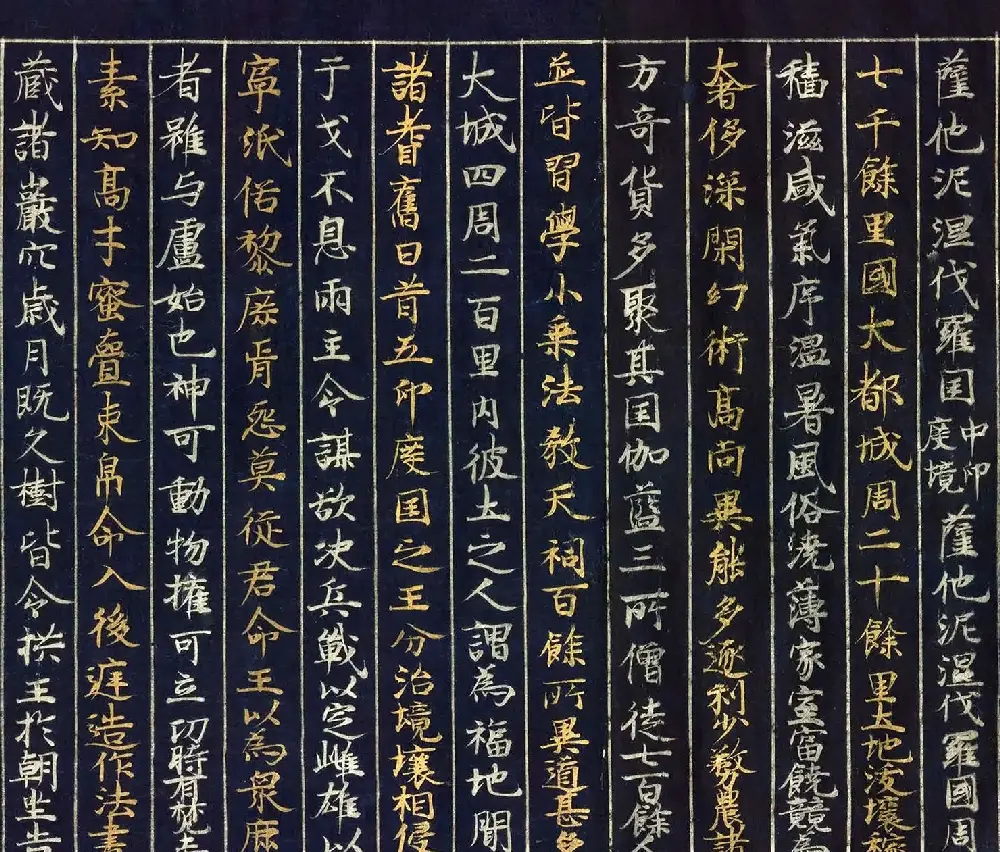 薩他泥濕伐羅国中印度境薩他泥濕伐羅國周
七千餘里國大都城周二十餘里土地沃壤稼
穡滋盛氣序温暑風俗澆薄家室富饒競為
奢侈深閑幻術高尚異能多逐利少務農諸
方奇貨多聚其国伽藍三所僧徒七百餘人
並皆習學小乗法教天祠百餘所異道甚多
大城四周二百里内彼土之人謂為福地聞
諸耆舊曰昔五印度国之王分治境壤相侵
于戈不息兩主合謀欲决兵戰以定雌雄以
寧氓俗黎庶胥怨莫從君命王以為衆庶
者雖与慮始也神可動物權可立功時有梵志
素知高才蜜齎束帛命入後庭造作法書
蔵諸巖穴歳月既久樹皆合拱王於朝坐告